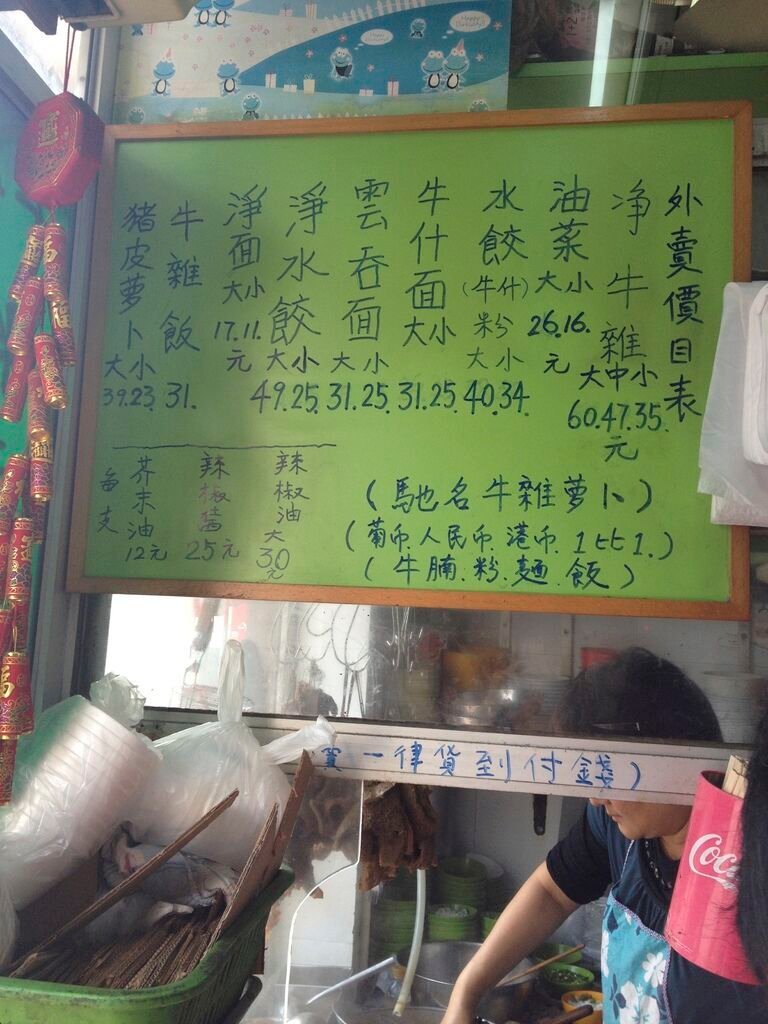 外賣價目表
净牛雜 大中小 60.47.35.元
油菜 大小 26.16.元
水餃(牛什)粉 大小 40.34.
牛什面 大小 31.25.
雲吞面 大小 31.25.
淨水餃 大小 49.25.
淨面 大小 17.11.元
牛雜飯 31.
豬皮萝卜 大小 39.23.
辣椒油 大 30元
辣椒醬 25元
芥末油 12元
每支
(馳名牛雜萝卜)
(葡币.人民币.港币.1比1.)
(牛腩.粉.麵.飯)
買一律貨到付錢)
Coc